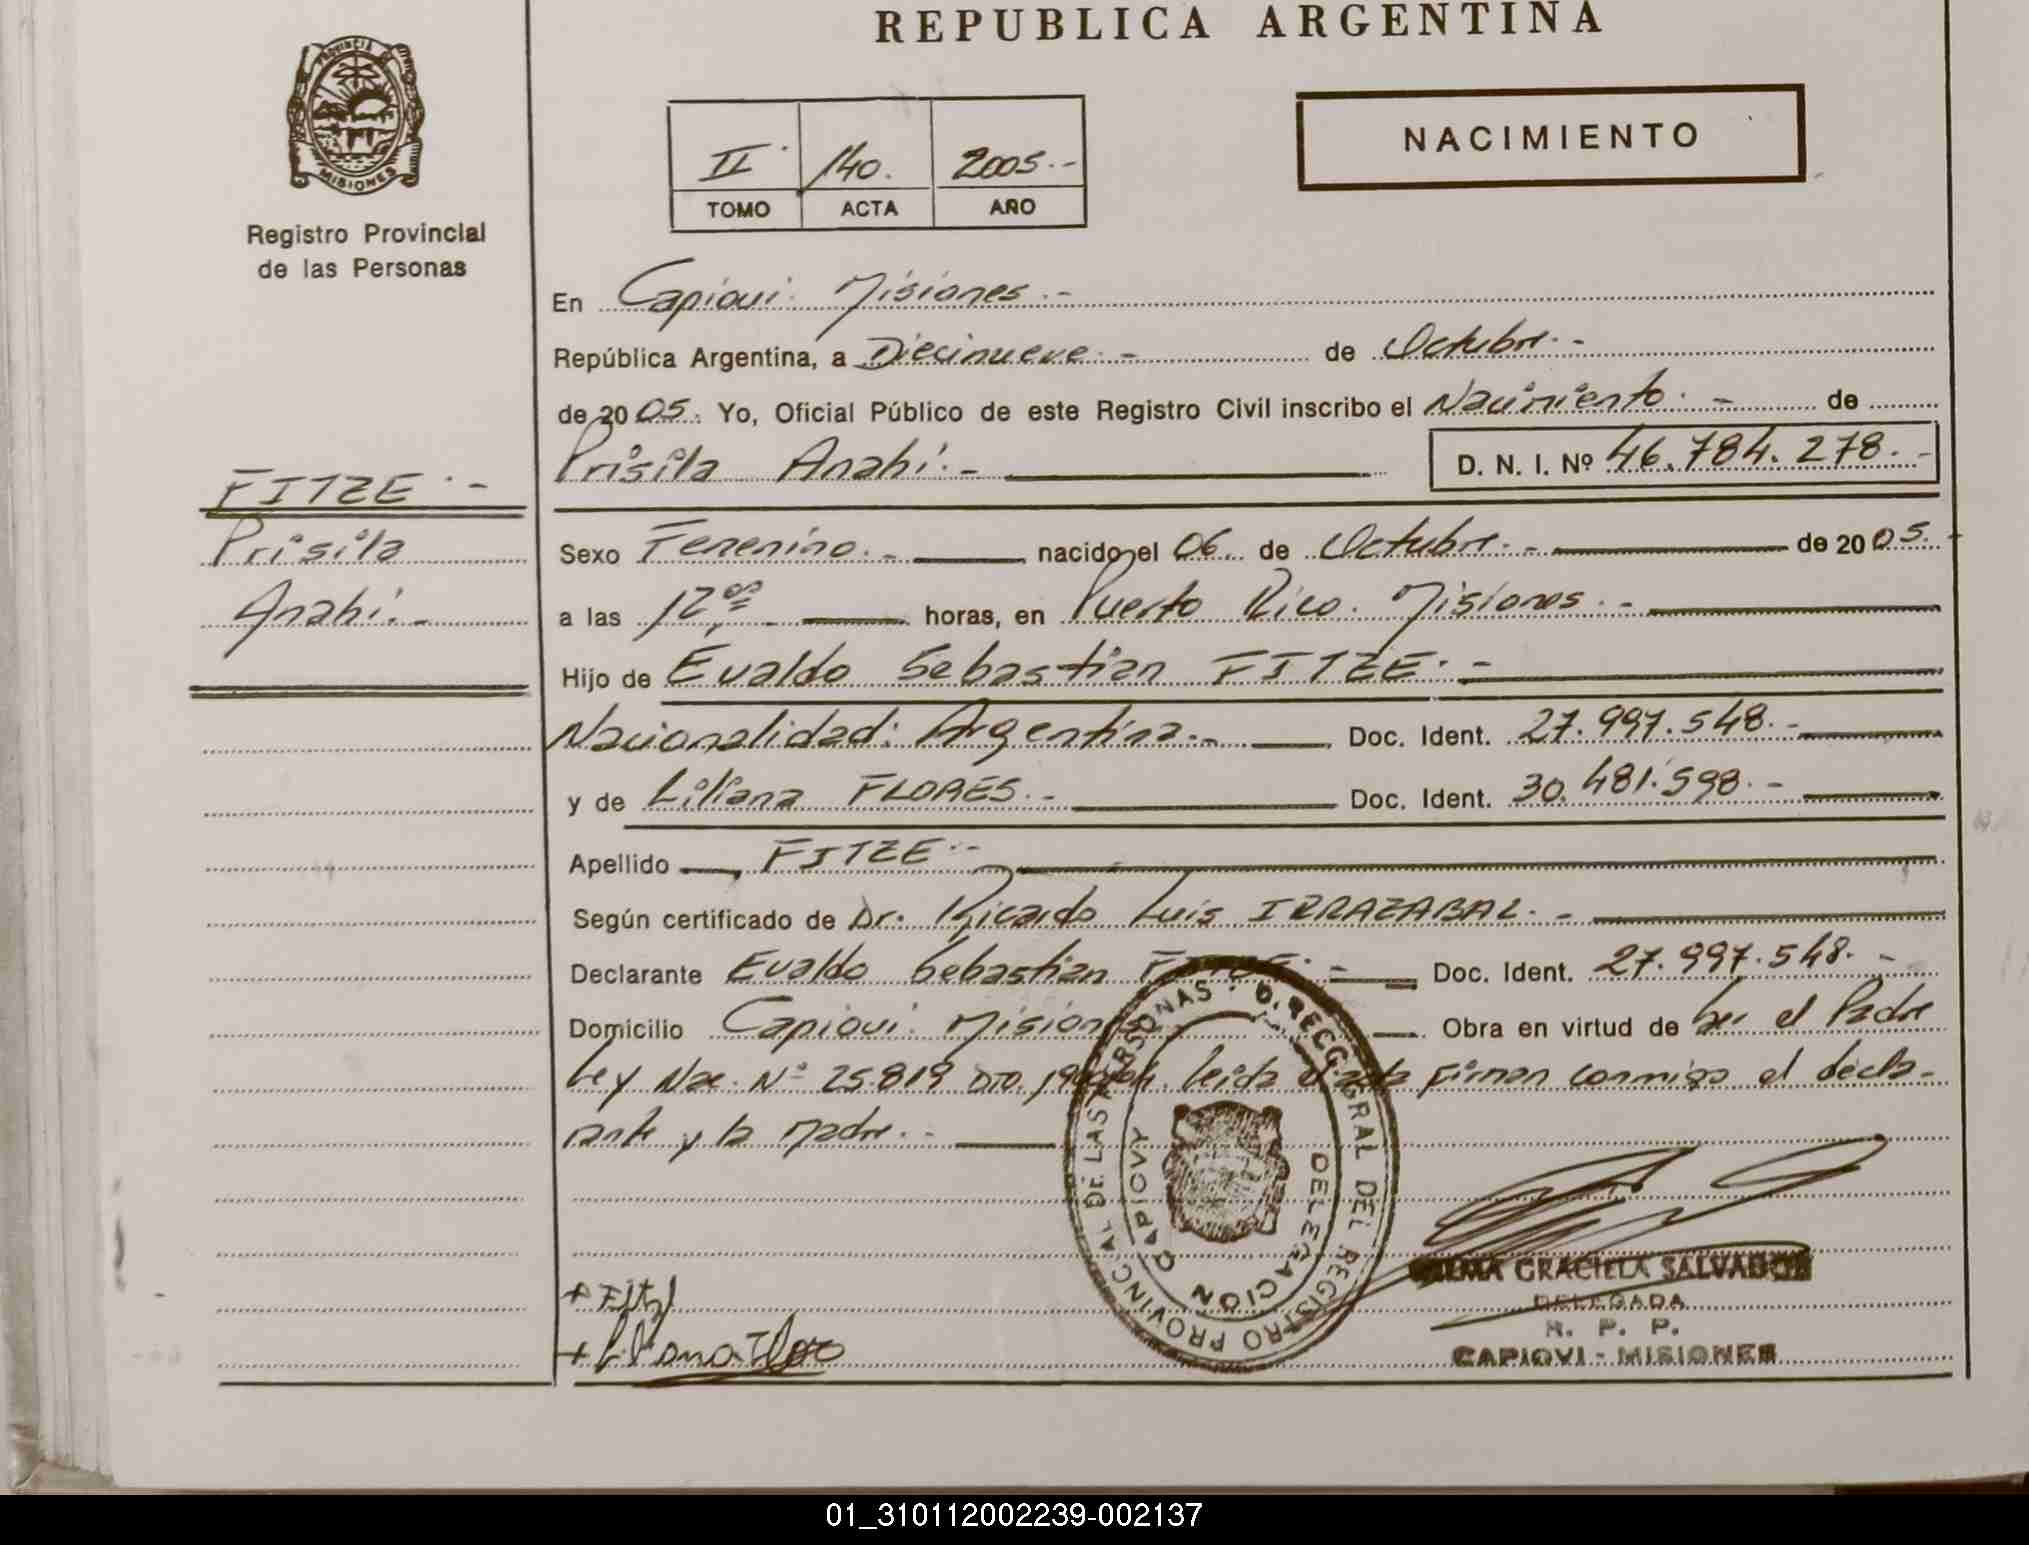 REPUBLICA ARGENTINA
PROVINCIA
MISIONES
Registro Provincial
de las Personas
II 140. 2005.-
TOMO ACTA AÑO
NACIMIENTO
En Capiovi. Misiones.-
República Argentina, a Diecinueve.- de Octubre.-
de 2005. Yo, Oficial Público de este Registro Civil inscribo el Nacimiento.- de
Prisila Anahi.- D. N. I. Nº 46.784.278.-
FITZE.-
Prisila
Anahi.-
Sexo Femenino.- nacido el 06 de Octubre.- de 2005.
a las 12,00 horas, en Puerto Rico. Misiones.-
Hijo de Evaldo Sebastian FITZE.-
Nacionalidad: Argentina.- Doc. Ident. 27.997.548.-
y de Liliana FLORES.- Doc. Ident. 30.481.598.-
Apellido FITZE.-
Según certificado de Dr. Ricardo Luis IRRAZABAL.-
Declarante Evaldo Sebastian FITZE.- Doc. Ident. 27.997.548.-
Domicilio Capiovi. Misiones Obra en virtud de ser el Padre
Ley Nac. Nº 25.819 DTO. leida el acta firman conmigo el decla-
rante y la Madre.-
D. RECC. GRAL DEL REGISTRO PROVINCIAL DE LAS PERSONAS
DELEGACION CAPIOVY
GRACIELA SALVADOR
DELEGADA
R. P. P.
CAPIOVI - MISIONES
+ Fitze
+ Liliana Flores
01_310112002239-002137